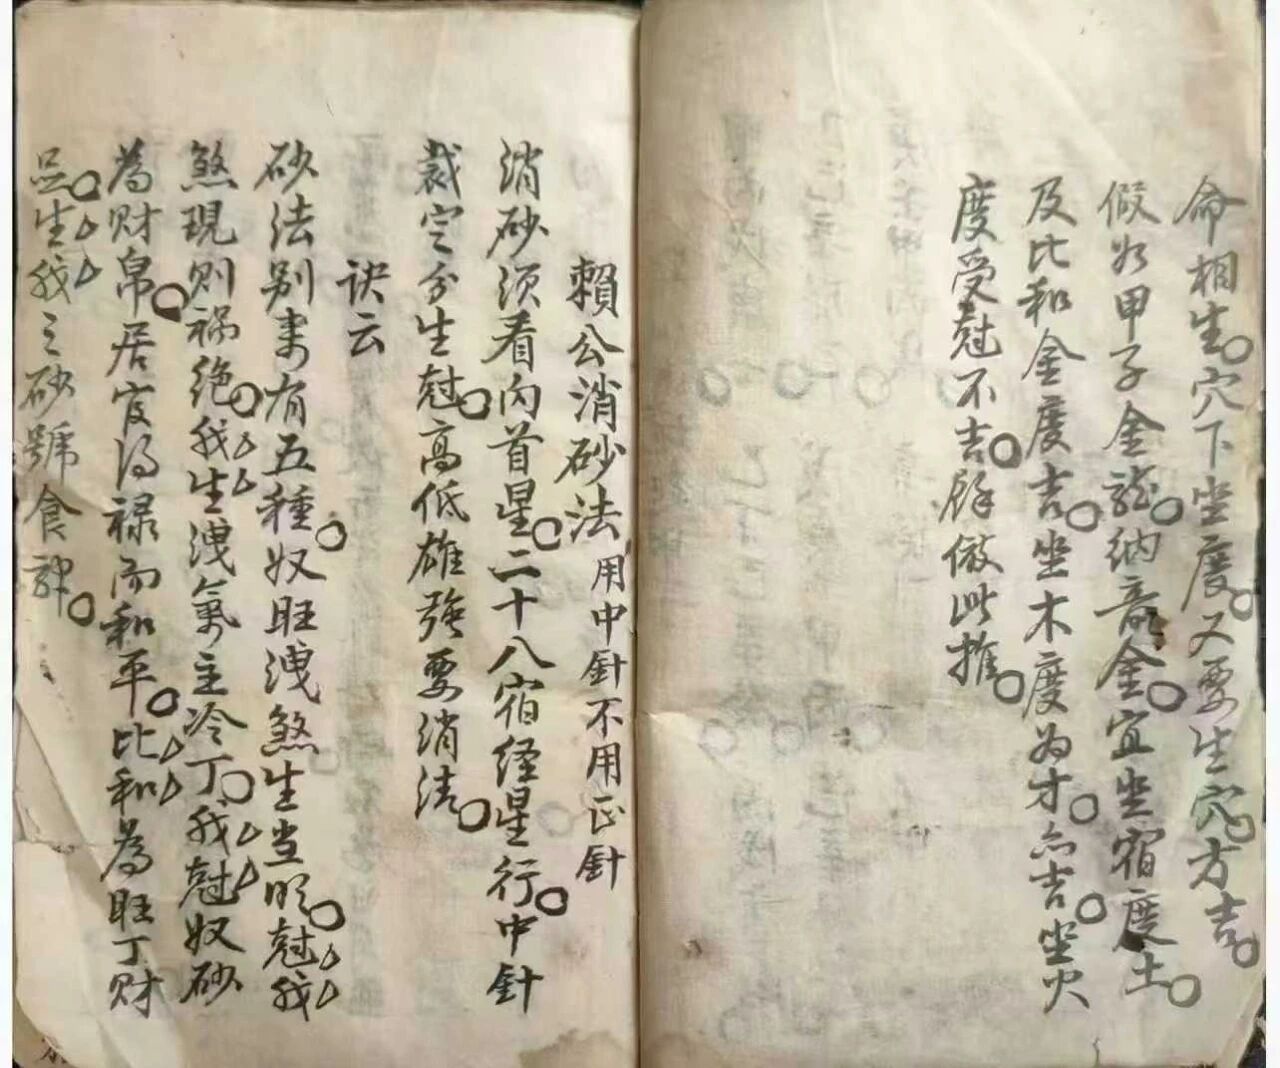 命相生。穴下坐度。又要生穴。方吉。
假如甲子金龍。納音金。宜坐宿度土。
及比和金度吉。坐木度为才。亦吉。坐火
度受尅不吉。餘倣此推。
賴公消砂法 用中針不用正針
消砂须看内首星。二十八宿经星行。中針
裁定分生尅。高低雄強要消清。
訣云
砂法别来有五種。奴旺洩煞生当明。尅我
煞現则祸绝。我生洩氣主冷丁。我尅奴砂
為财帛。居官得禄而和平。比和為旺丁财
。生我之砂號食神。